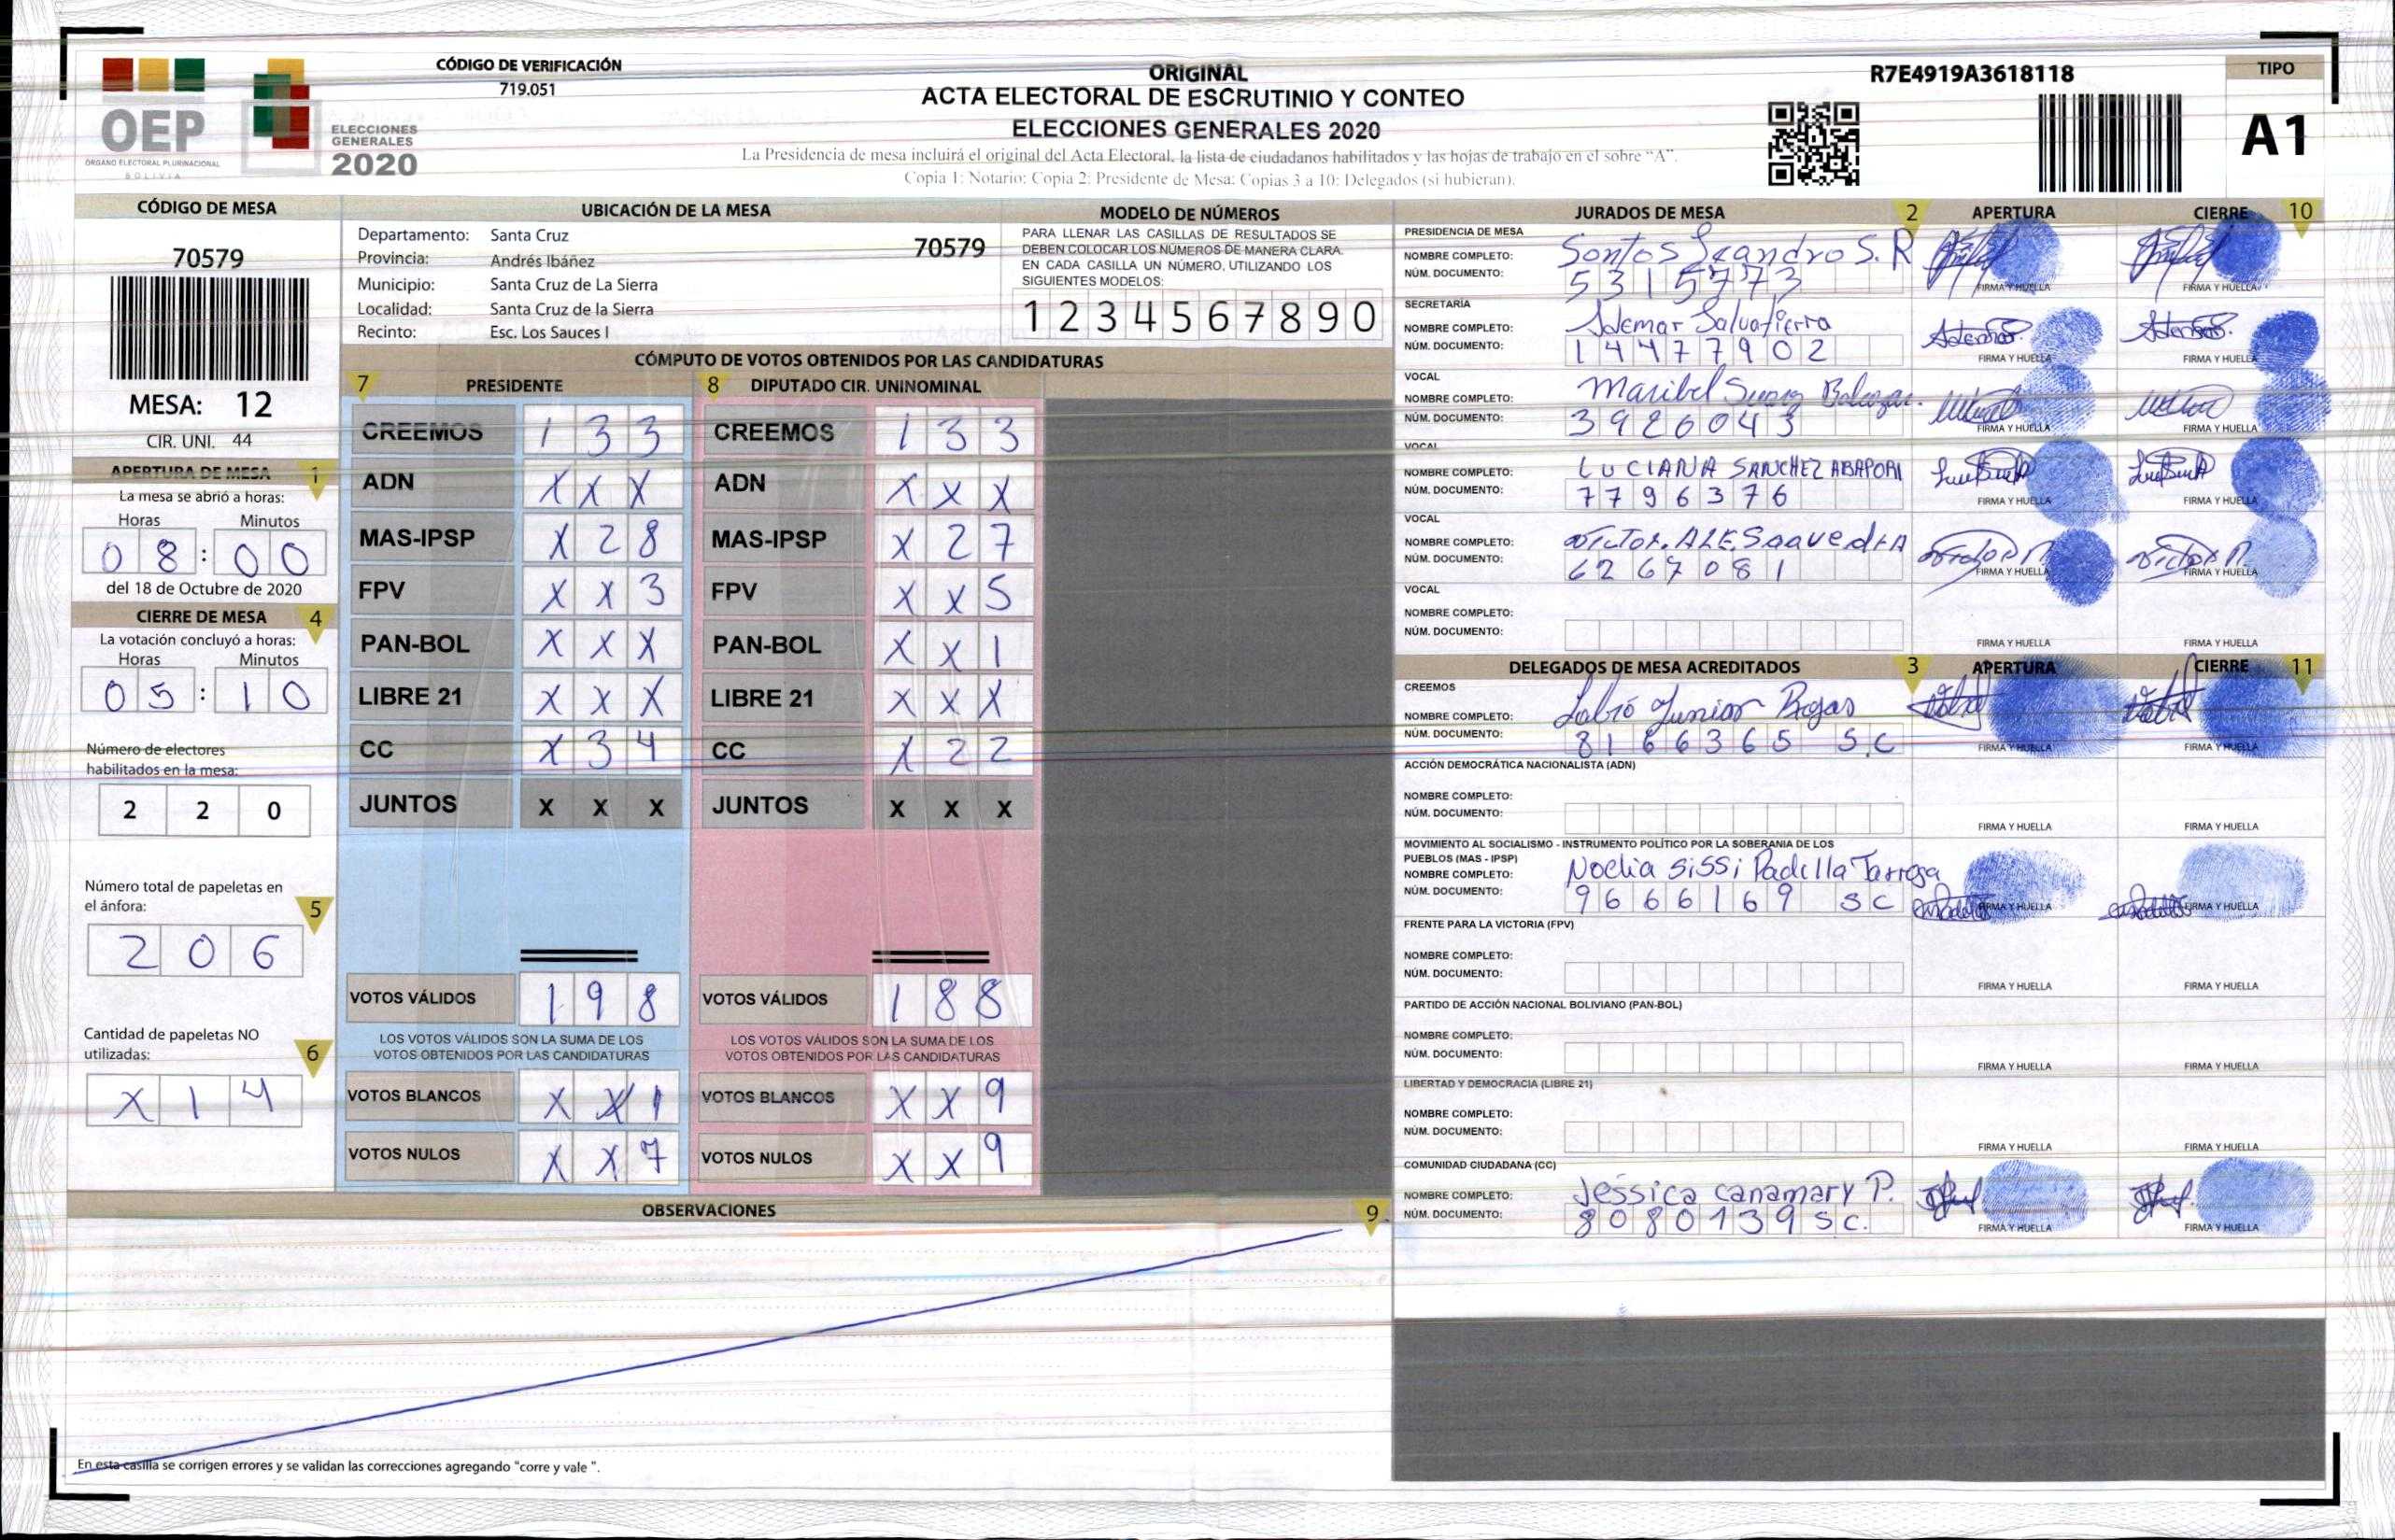 CÓDIGO DE VERIFICACIÓN
719.051
OEP
ÓRGANO ELECTORAL PLURINACIONAL
BOLIVIA
ELECCIONES
GENERALES
2020
ORIGINAL
ACTA ELECTORAL DE ESCRUTINIO Y CONTEO
ELECCIONES GENERALES 2020
La Presidencia de mesa incluirá el original del Acta Electoral, la lista de ciudadanos habilitados y las hojas de trabajo en el sobre “A”.
Copia 1: Notario; Copia 2: Presidente de Mesa; Copias 3 a 10: Delegados (si hubieran).
R7E4919A3618118
TIPO
A1
CÓDIGO DE MESA
70579
MESA: 12
CIR. UNI. 44
APERTURA DE MESA 1
La mesa se abrió a horas:
Horas Minutos
08:00
del 18 de Octubre de 2020
CIERRE DE MESA 4
La votación concluyó a horas:
Horas Minutos
05:10
Número de electores
habilitados en la mesa:
2 2 0
Número total de papeletas en
el ánfora:
5
2 0 6
Cantidad de papeletas NO
utilizadas:
6
X 1 4
UBICACIÓN DE LA MESA
Departamento: Santa Cruz
70579
Provincia: Andrés Ibáñez
Municipio: Santa Cruz de La Sierra
Localidad: Santa Cruz de la Sierra
Recinto: Esc. Los Sauces I
MODELO DE NÚMEROS
PARA LLENAR LAS CASILLAS DE RESULTADOS SE
DEBEN COLOCAR LOS NÚMEROS DE MANERA CLARA.
EN CADA CASILLA UN NÚMERO, UTILIZANDO LOS
SIGUIENTES MODELOS:
1 2 3 4 5 6 7 8 9 0
CÓMPUTO DE VOTOS OBTENIDOS POR LAS CANDIDATURAS
7 PRESIDENTE 8 DIPUTADO CIR. UNINOMINAL
CREEMOS 1 3 3 CREEMOS 1 3 3
ADN X X X ADN X X X
MAS-IPSP X 2 8 MAS-IPSP X 2 7
FPV X X 3 FPV X X 5
PAN-BOL X X X PAN-BOL X X 1
LIBRE 21 X X X LIBRE 21 X X X
CC X 3 4 CC X 2 2
JUNTOS X X X JUNTOS X X X
VOTOS VÁLIDOS 1 9 8 VOTOS VÁLIDOS 1 8 8
LOS VOTOS VÁLIDOS SON LA SUMA DE LOS LOS VOTOS VÁLIDOS SON LA SUMA DE LOS
VOTOS OBTENIDOS POR LAS CANDIDATURAS VOTOS OBTENIDOS POR LAS CANDIDATURAS
VOTOS BLANCOS X X 1 VOTOS BLANCOS X X 9
VOTOS NULOS X X 7 VOTOS NULOS X X 9
OBSERVACIONES 9
En esta casilla se corrigen errores y se validan las correcciones agregando "corre y vale ".
JURADOS DE MESA 2 APERTURA CIERRE 10
PRESIDENCIA DE MESA
NOMBRE COMPLETO: Santos Leandro S. R
NÚM. DOCUMENTO: 5315773
FIRMA Y HUELLA FIRMA Y HUELLA
SECRETARIA
NOMBRE COMPLETO: Ademar Salvatierra
NÚM. DOCUMENTO: 14477902
FIRMA Y HUELLA FIRMA Y HUELLA
VOCAL
NOMBRE COMPLETO: Maribel Suarez
NÚM. DOCUMENTO: 3926043
FIRMA Y HUELLA FIRMA Y HUELLA
VOCAL
NOMBRE COMPLETO: LUCIANA SANCHEZ ABAPORI
NÚM. DOCUMENTO: 7796376
FIRMA Y HUELLA FIRMA Y HUELLA
VOCAL
NOMBRE COMPLETO: Victor. ALE. Saavedra
NÚM. DOCUMENTO: 6267081
FIRMA Y HUELLA FIRMA Y HUELLA
VOCAL
NOMBRE COMPLETO:
NÚM. DOCUMENTO:
FIRMA Y HUELLA FIRMA Y HUELLA
DELEGADOS DE MESA ACREDITADOS 3 APERTURA CIERRE 11
CREEMOS
NOMBRE COMPLETO: Junior Rojas
NÚM. DOCUMENTO: 8166365 S.C
FIRMA Y HUELLA FIRMA Y HUELLA
ACCIÓN DEMOCRÁTICA NACIONALISTA (ADN)
NOMBRE COMPLETO:
NÚM. DOCUMENTO:
FIRMA Y HUELLA FIRMA Y HUELLA
MOVIMIENTO AL SOCIALISMO - INSTRUMENTO POLÍTICO POR LA SOBERANIA DE LOS
PUEBLOS (MAS - IPSP)
NOMBRE COMPLETO: Noelia Sissi Padilla Tarraga
NÚM. DOCUMENTO: 9666169 SC
FIRMA Y HUELLA FIRMA Y HUELLA
FRENTE PARA LA VICTORIA (FPV)
NOMBRE COMPLETO:
NÚM. DOCUMENTO:
FIRMA Y HUELLA FIRMA Y HUELLA
PARTIDO DE ACCIÓN NACIONAL BOLIVIANO (PAN-BOL)
NOMBRE COMPLETO:
NÚM. DOCUMENTO:
FIRMA Y HUELLA FIRMA Y HUELLA
LIBERTAD Y DEMOCRACIA (LIBRE 21)
NOMBRE COMPLETO:
NÚM. DOCUMENTO:
FIRMA Y HUELLA FIRMA Y HUELLA
COMUNIDAD CIUDADANA (CC)
NOMBRE COMPLETO: Jessica canamary P.
NÚM. DOCUMENTO: 8080139 S.C.
FIRMA Y HUELLA FIRMA Y HUELLA